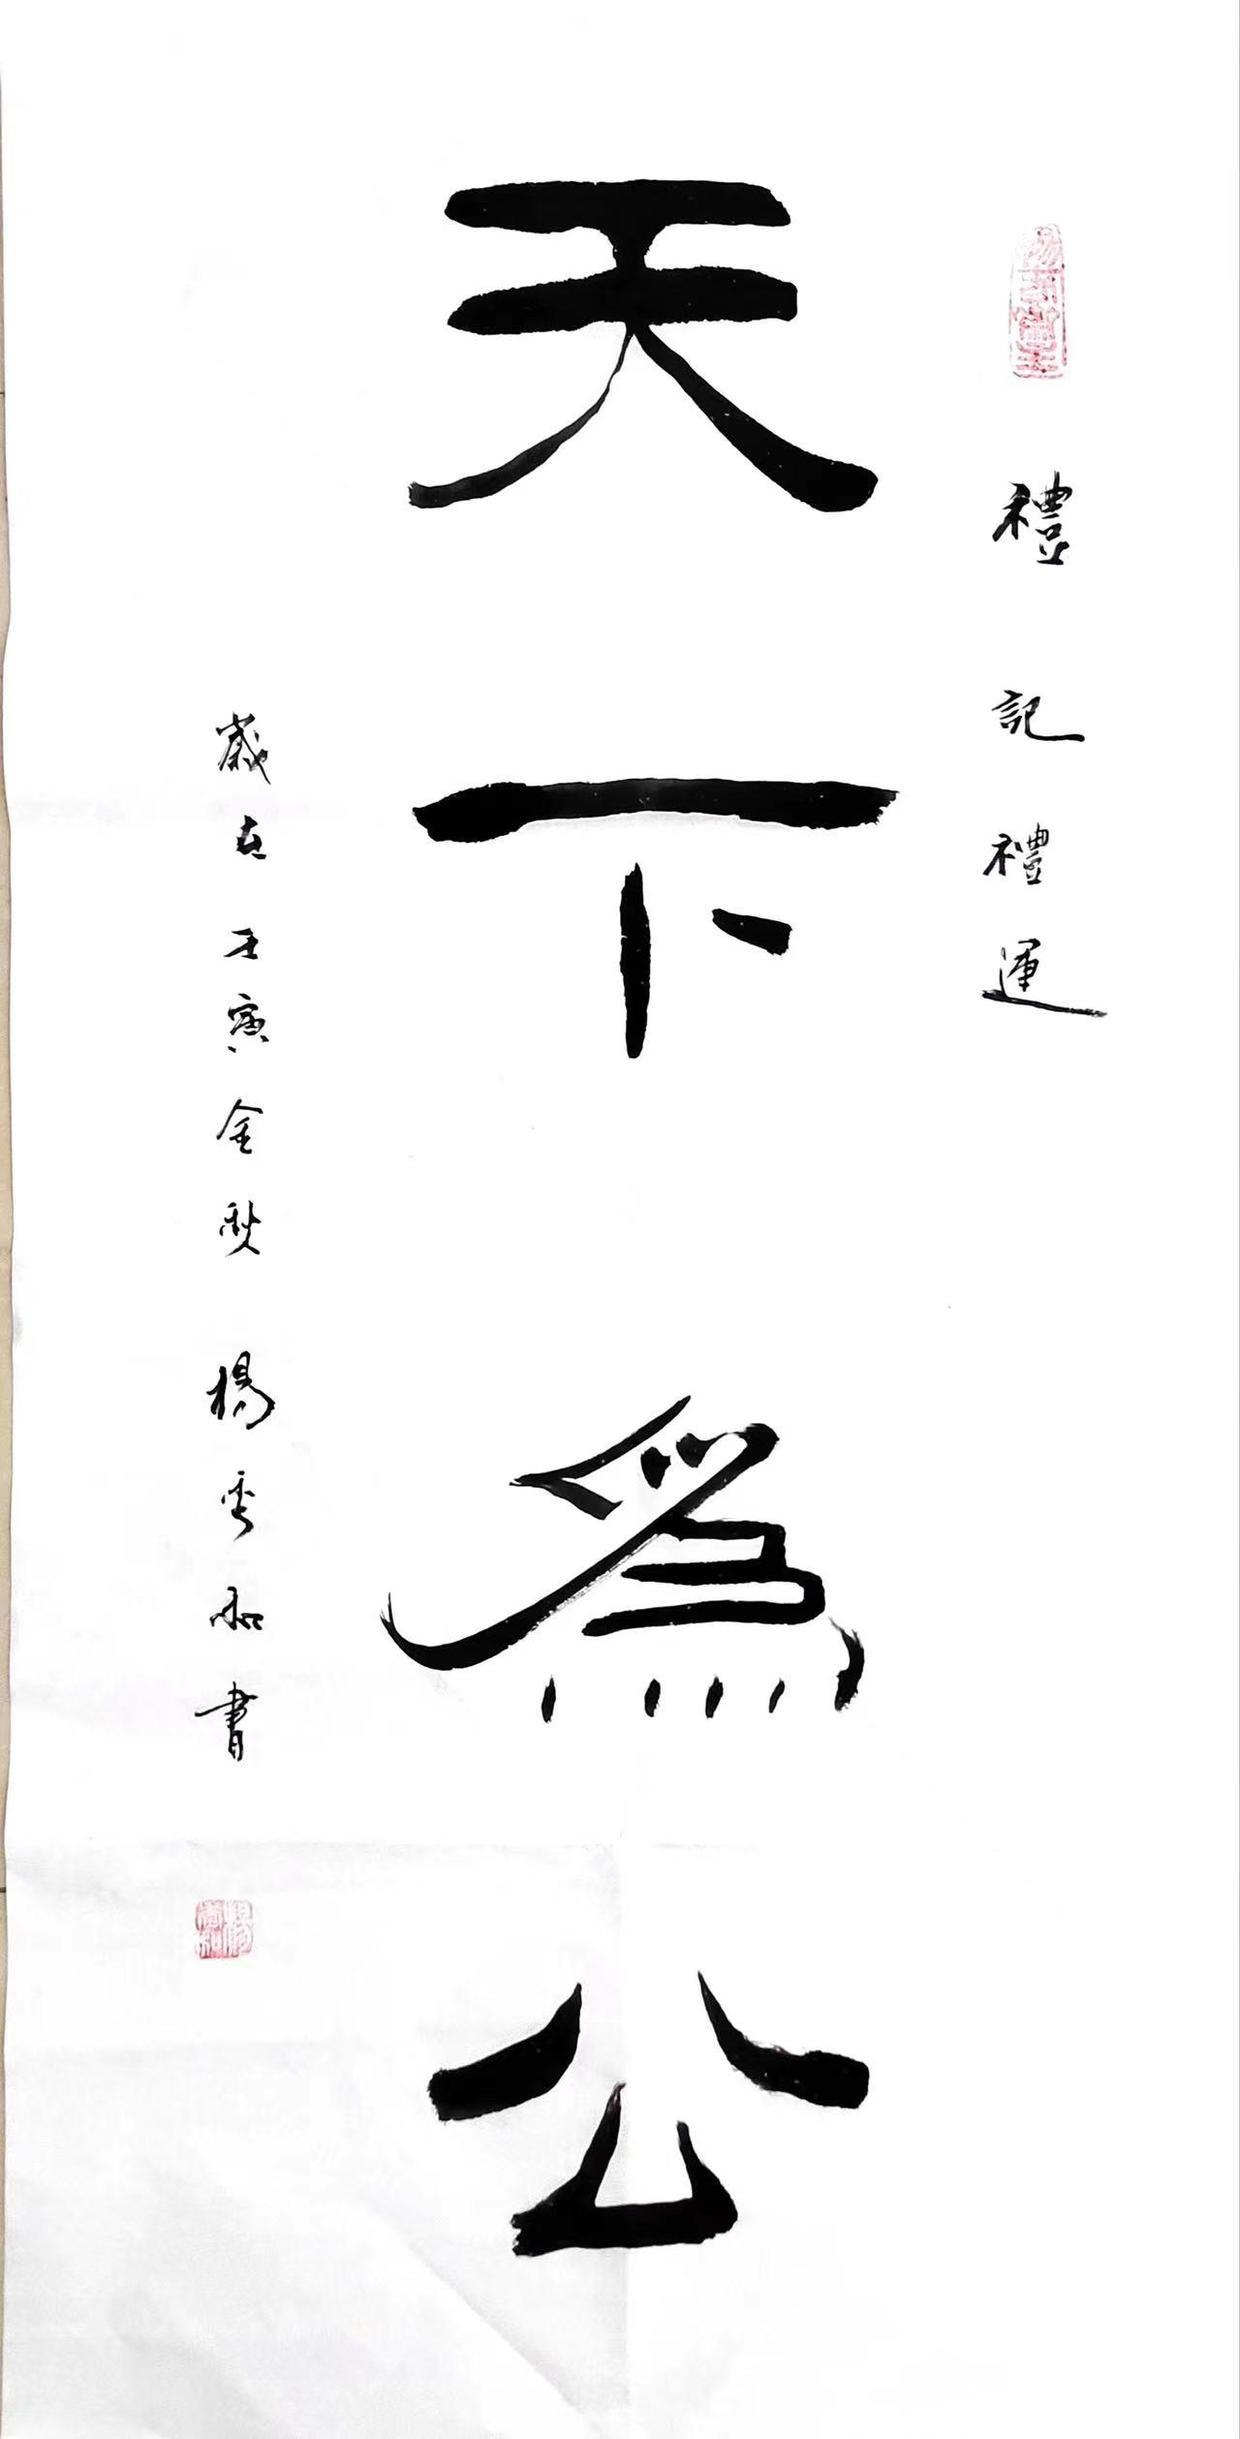 禮記禮運
天下爲公
歲在壬寅金秋 楊雲和書